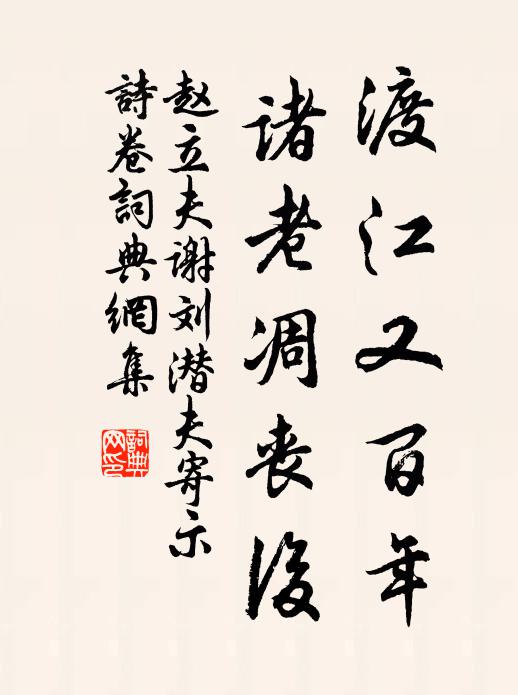 渡江又百年
诸老凋丧後
赵立夫谢刘潜夫寄示
詩卷詞典網集
詞典
网印